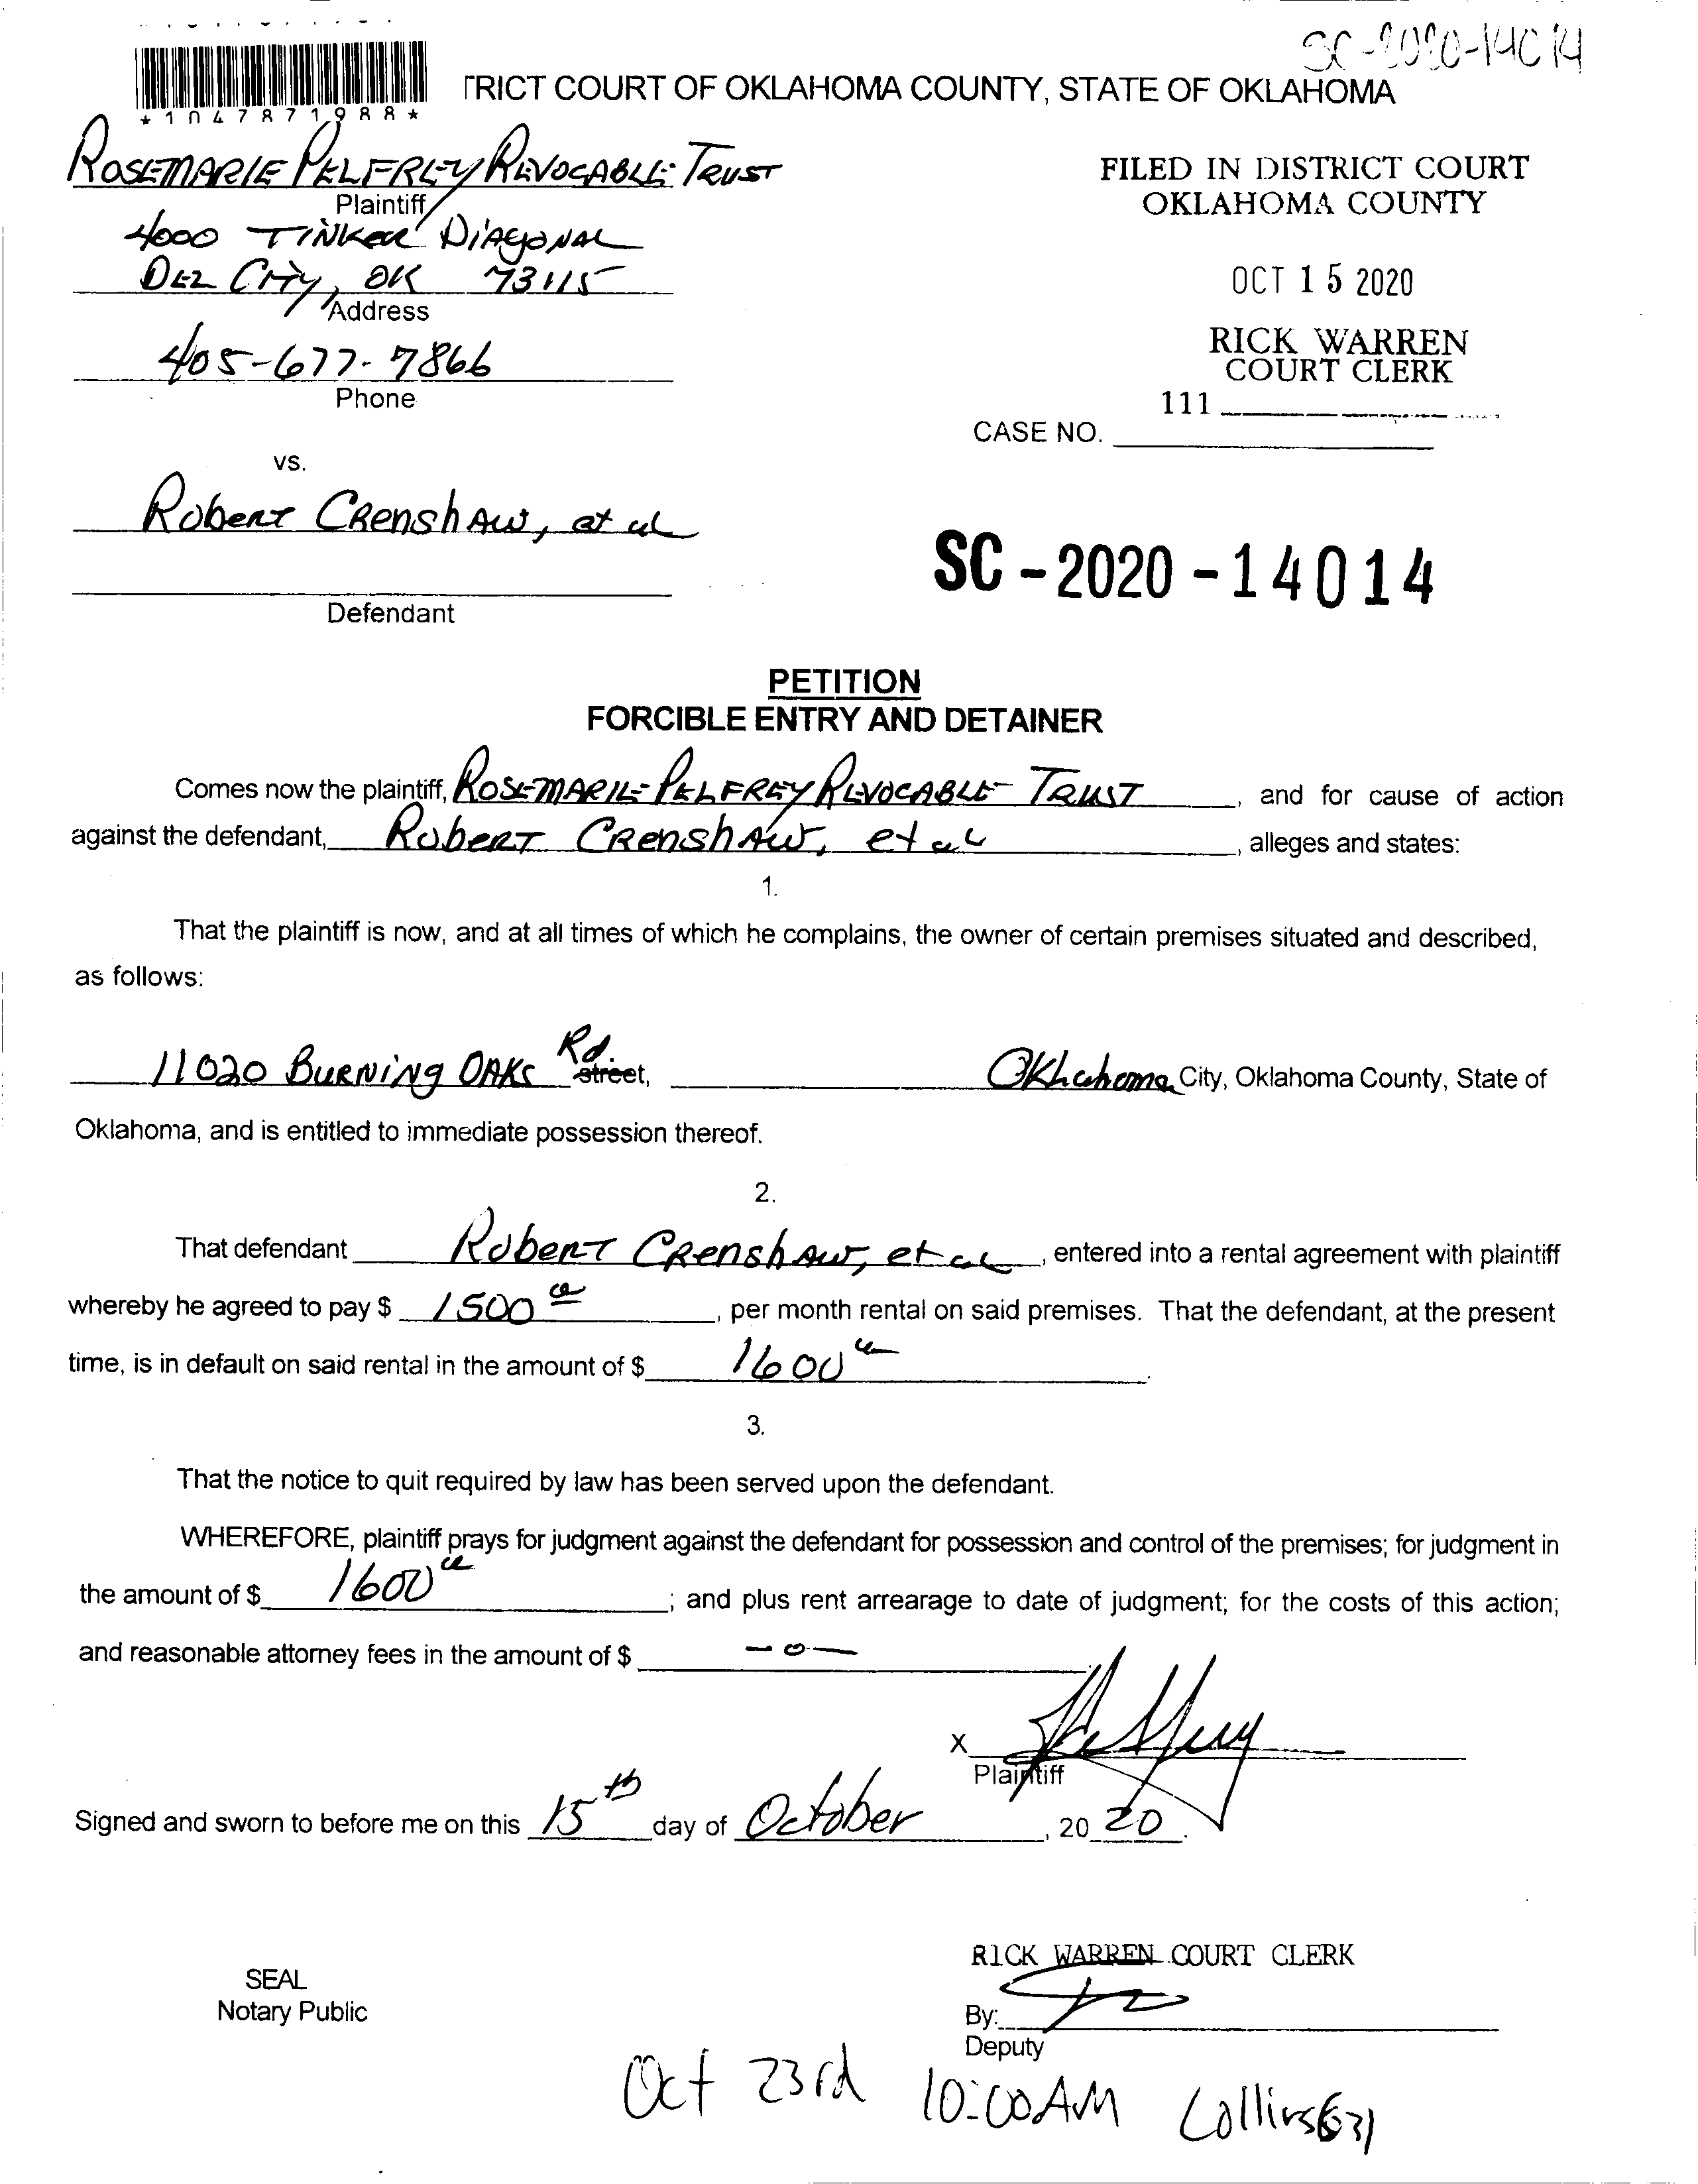 SC-2020-14014
*1047871988*
TRICT COURT OF OKLAHOMA COUNTY, STATE OF OKLAHOMA
ROSEMARIE PELFREY REVOCABLE TRUST
Plaintiff
4000 TINKER DIAGONAL
DEL CITY, OK 73115
Address
405-677-7866
Phone
FILED IN DISTRICT COURT
OKLAHOMA COUNTY
OCT 15 2020
RICK WARREN
COURT CLERK
111
CASE NO.
vs.
Robert Crenshaw, at al
Defendant
SC-2020-14014
PETITION
FORCIBLE ENTRY AND DETAINER
Comes now the plaintiff, ROSEMARIE PELFREY REVOCABLE TRUST, and for cause of action
against the defendant, Robert Crenshaw, et al, alleges and states:
1.
That the plaintiff is now, and at all times of which he complains, the owner of certain premises situated and described,
as follows:
11020 Burning Oaks Rd. street, Oklahoma City, Oklahoma County, State of
Oklahoma, and is entitled to immediate possession thereof.
2.
That defendant Robert Crenshaw, et al, entered into a rental agreement with plaintiff
whereby he agreed to pay $ 1500, per month rental on said premises. That the defendant, at the present
time, is in default on said rental in the amount of $ 1600.
3.
That the notice to quit required by law has been served upon the defendant.
WHEREFORE, plaintiff prays for judgment against the defendant for possession and control of the premises; for judgment in
the amount of $ 1600; and plus rent arrearage to date of judgment; for the costs of this action;
and reasonable attorney fees in the amount of $ -0-
X
Plaintiff
Signed and sworn to before me on this 15th day of October, 2020.
RICK WARREN COURT CLERK
SEAL
Notary Public
By:
Deputy
Oct 23rd 10:00AM Collins